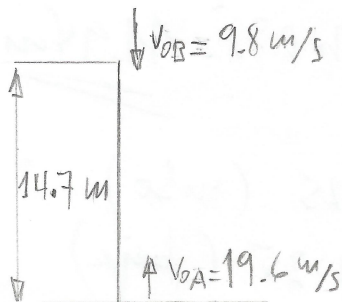 V₀B = 9.8 m/s
14.7 m
V₀A = 19.6 m/s